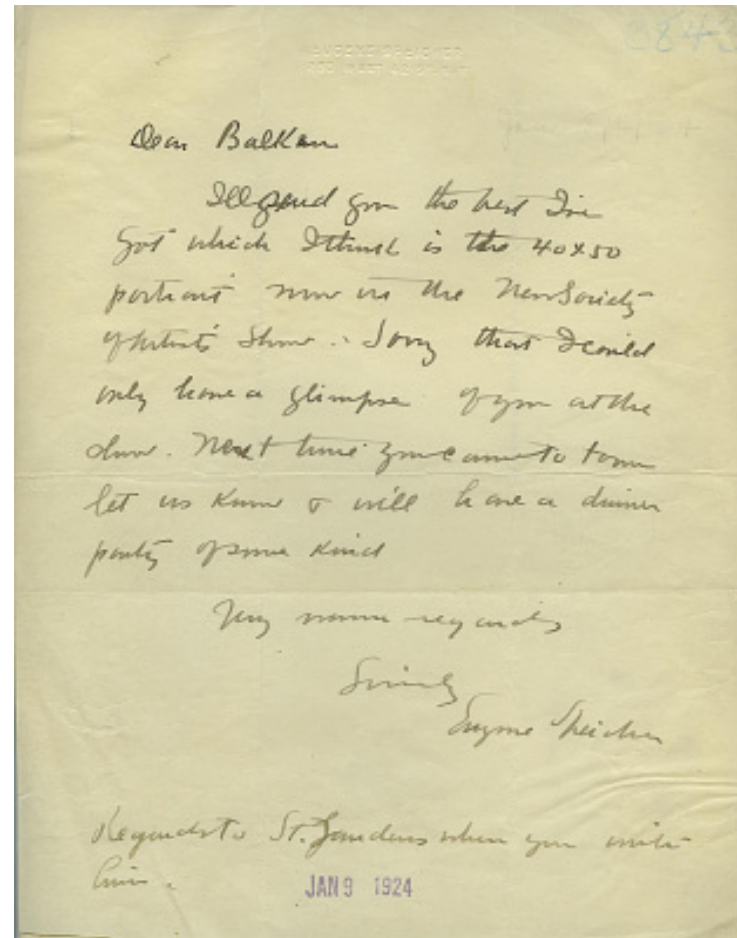 3843
EUGENE SPEICHER
Dear Balken
I'll send you the best I've
got which I think is the 40x50
portrait now in the New Society
of Artists Show. Sorry that I could
only have a glimpse of you at the
show. Next time you come to town
let us know & will have a dinner
party of some kind
My warm regards
Sincerely
Eugene Speicher
Regards to St. Gaudens when you write
him.
JAN 9 1924